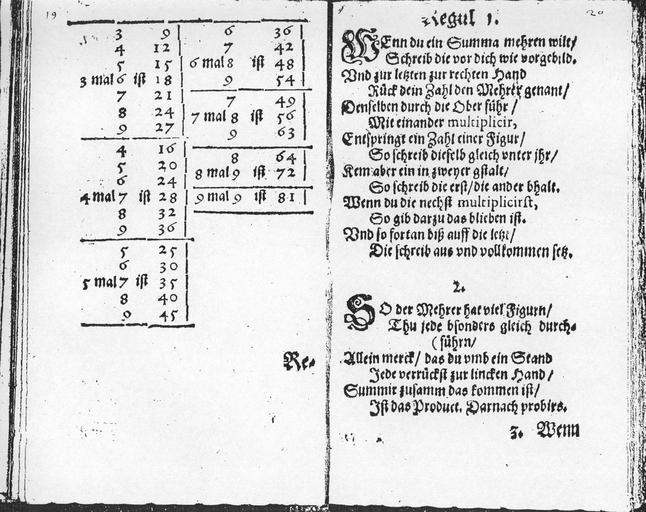 19
3 9
4 12
5 15
3 mal 6 ist 18
7 21
8 24
9 27
4 16
5 20
6 24
4 mal 7 ist 28
8 32
9 36
5 25
6 30
5 mal 7 ist 35
8 40
9 45
6 36
7 42
6 mal 8 ist 48
9 54
7 49
7 mal 8 ist 56
9 63
8 64
8 mal 9 ist 72
9 mal 9 ist 81
Re-
20
Regul 1.
WEnn du ein Summa mehren wilt/
Schreib die vor dich wie vorgebild.
Vnd zur letzten zur rechten Hand
Rück dein Zahl den Mehrer genant/
Denselben durch die Ober führ/
Mit einander multiplicir,
Entspringt ein Zahl einer Figur/
So schreib dieselb gleich vnter jhr/
Kem aber ein in zweyer gstalt/
So schreib die erst/ die ander bhalt.
Wenn du die nechst multiplicirst,
So gib darzu das blieben ist.
Vnd so fortan biß auff die letzt/
Die schreib aus vnd vollkommen setz.
2.
SO der Mehrer hat viel Figurn/
Thu jede bsonders gleich durch-
(führn/
Allein merck/ das du vmb ein Stand
Jede verrückst zur lincken Hand/
Summir zusamm das kommen ist/
Ist das Product. Darnach probirs.
3. Wenn